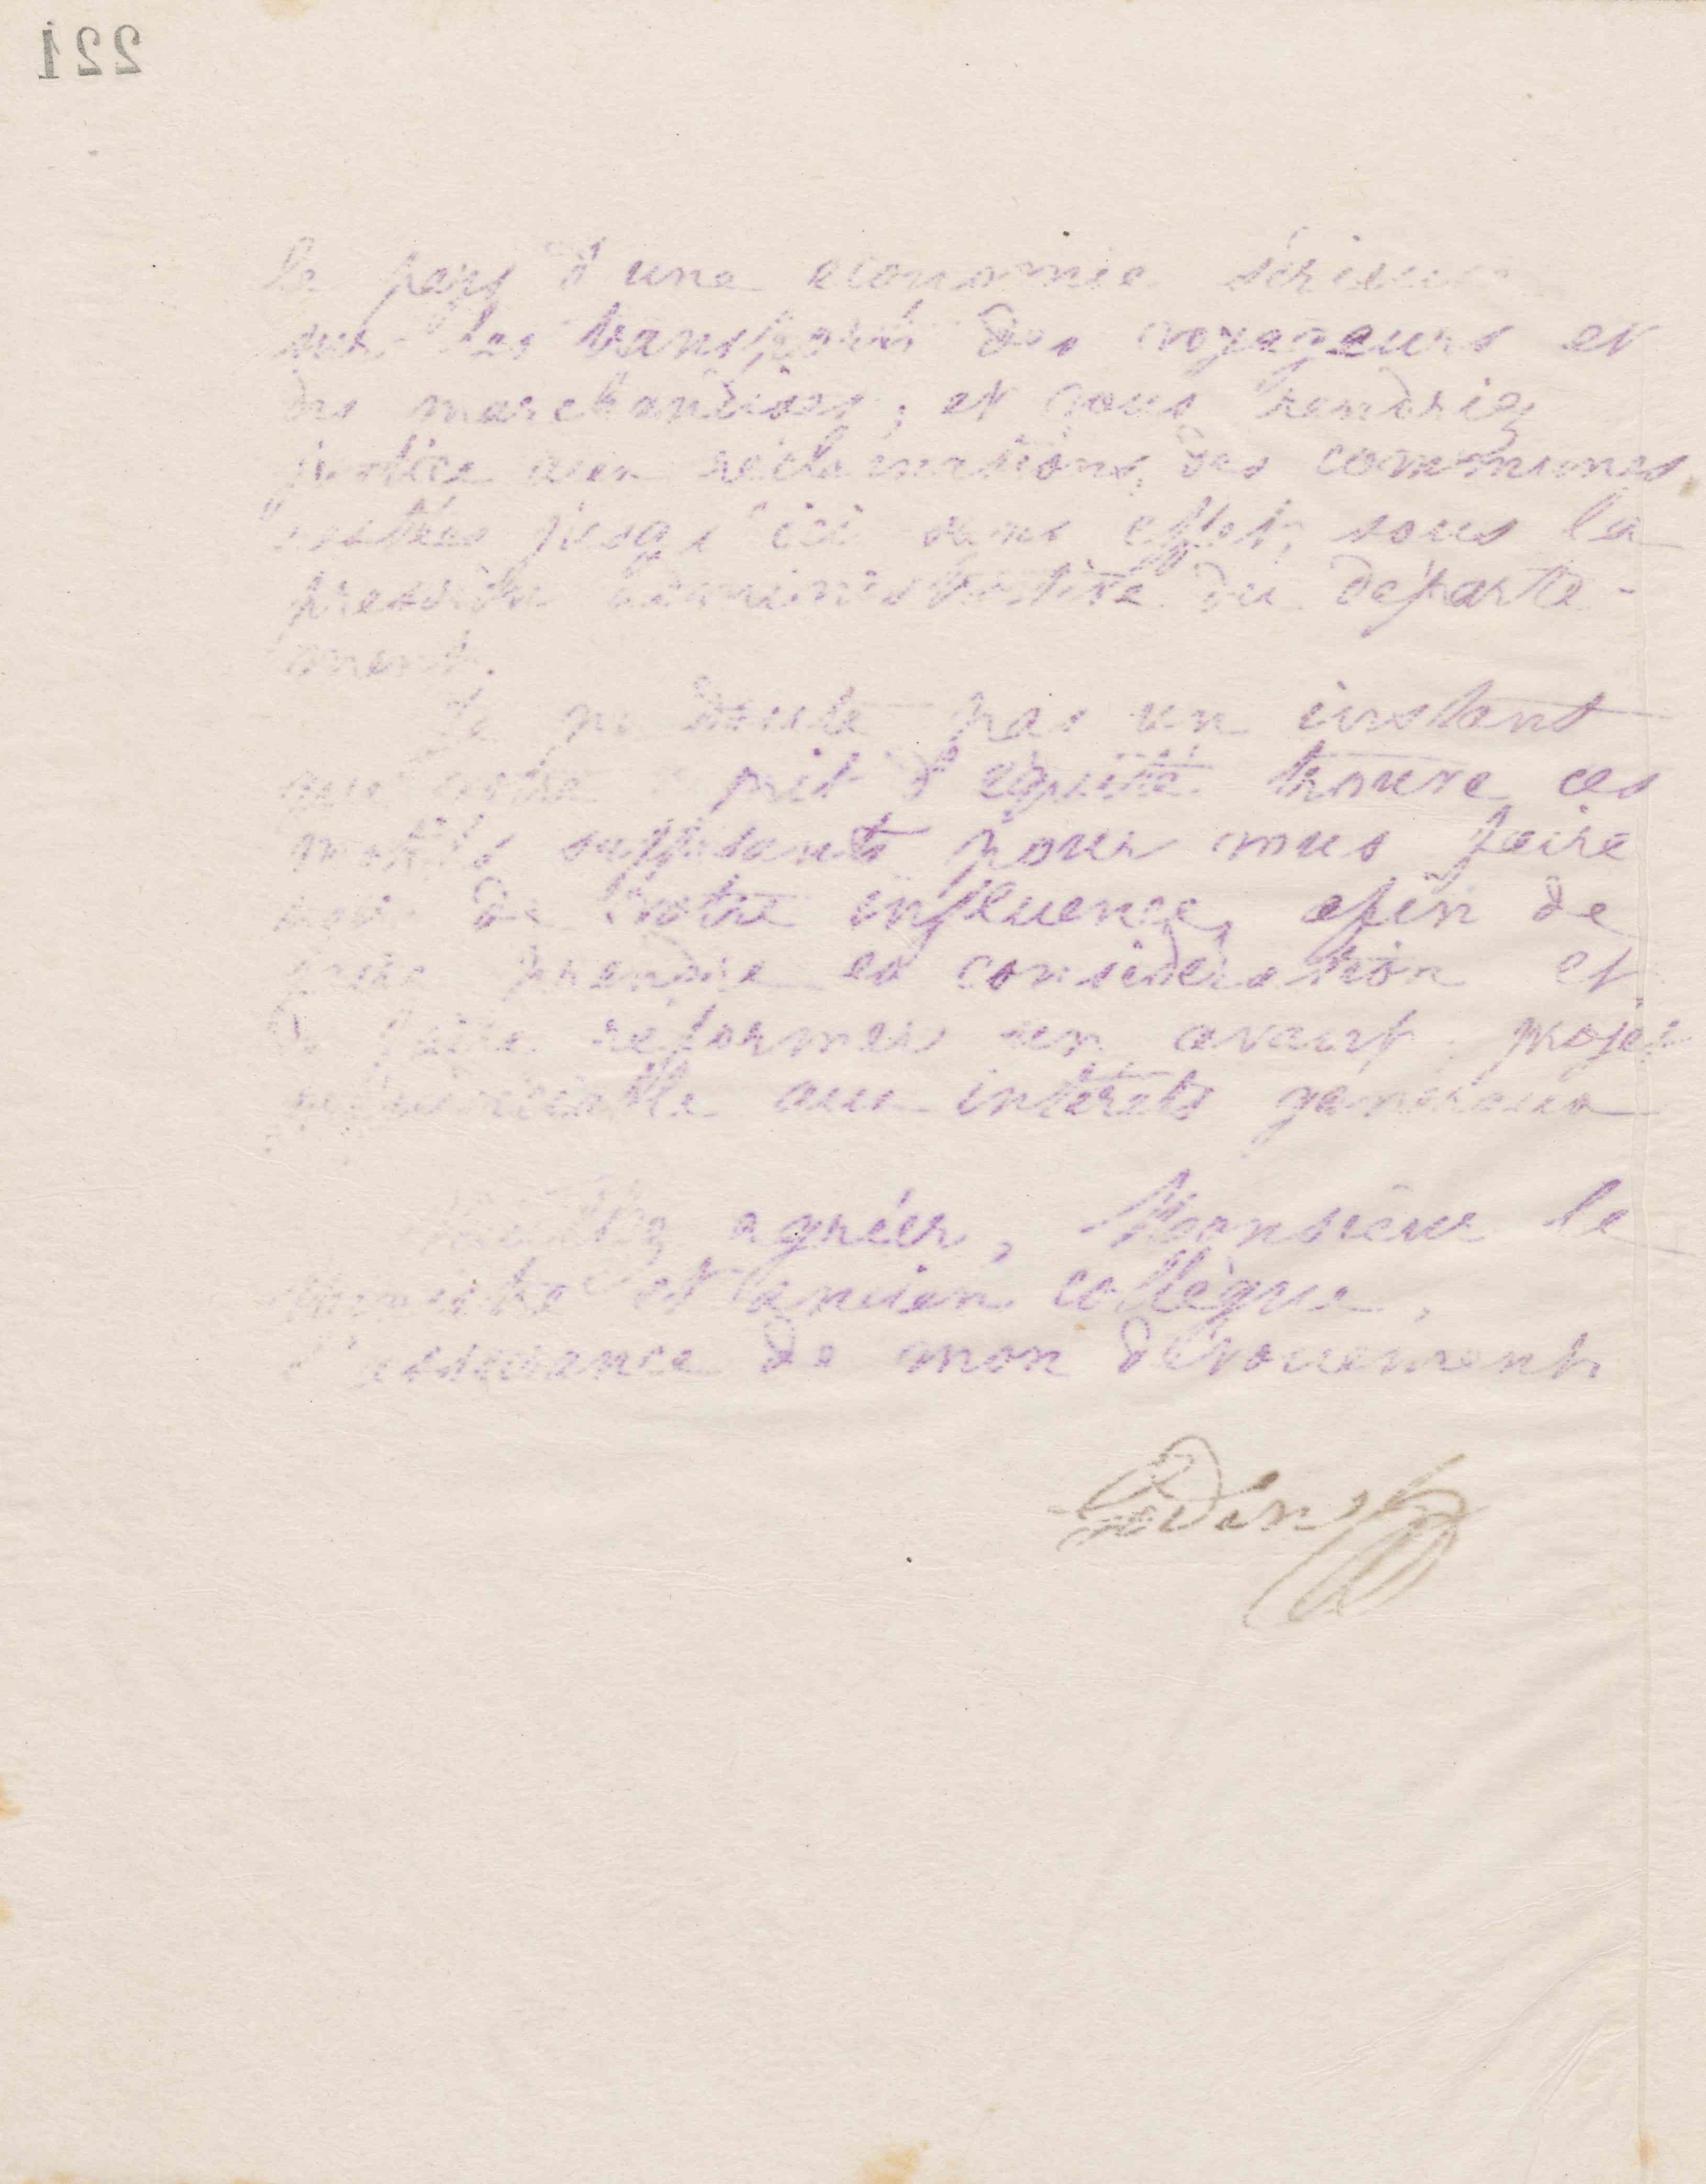 221
le pays d'une économie sérieuse
sur les transports des voyageurs et
des marchandises, et vous rendriez
justice aux réclamations des communes,
restées jusqu'ici sans effet, sous la
pression administrative du départe-
ment.
Je ne doute pas un instant
que votre esprit d'équité trouve ces
motifs suffisants pour nous faire
de votre influence, afin de
faire prendre en considération et
de faire réformer un avant projet
préjudiciable aux intérêts généraux
Veuillez agréer, Monsieur le
Ministre et ancien collègue,
l'assurance de mon dévouement
Godin